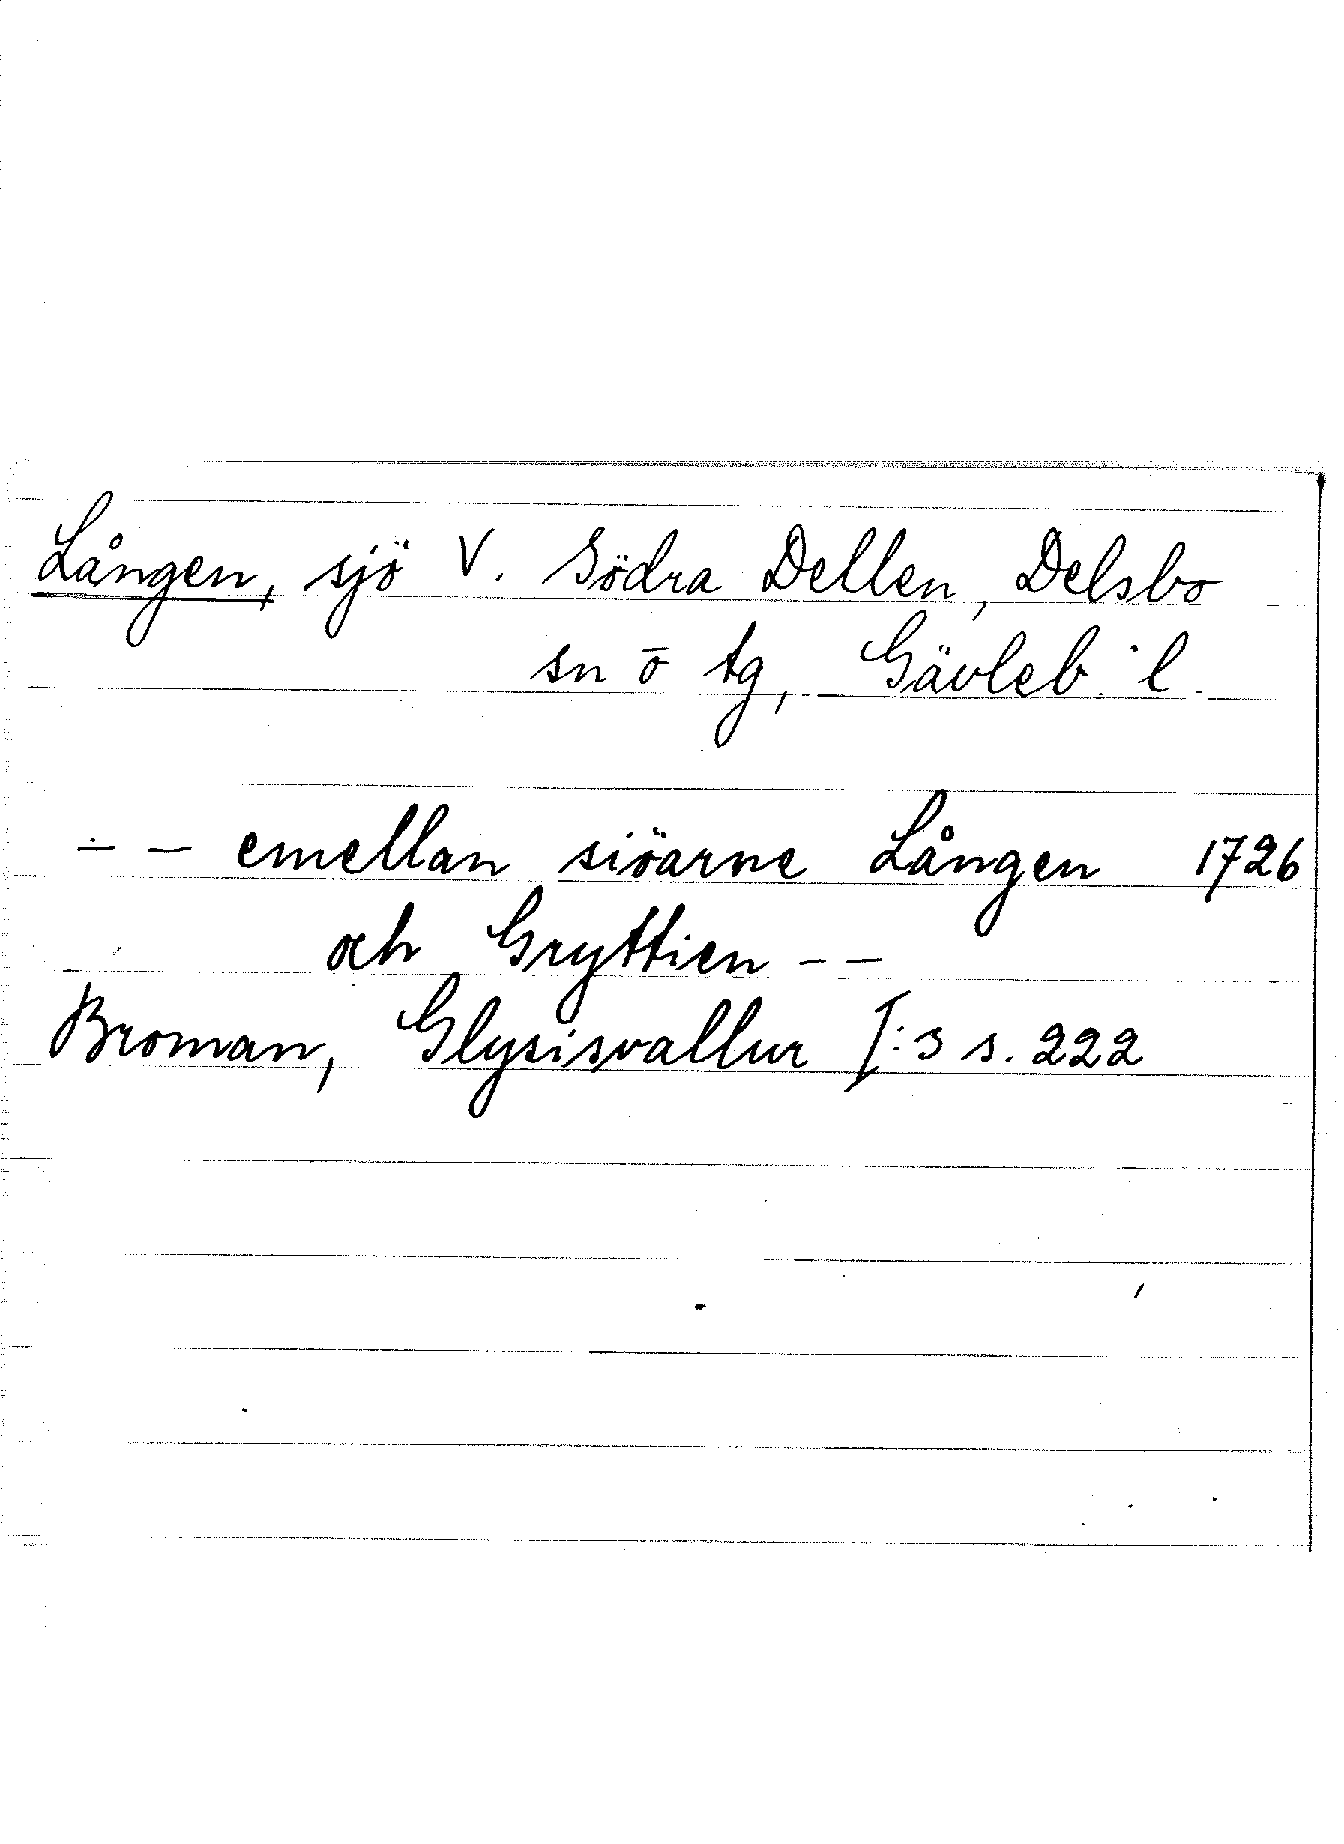 Lången, sjö V. Södra Dellen, Delsbo
sn o tg, Gävleb. l.
-- emellan siöarne Lången 1726
och Gryttien --
Broman, Glysisvallur I:3 s. 222